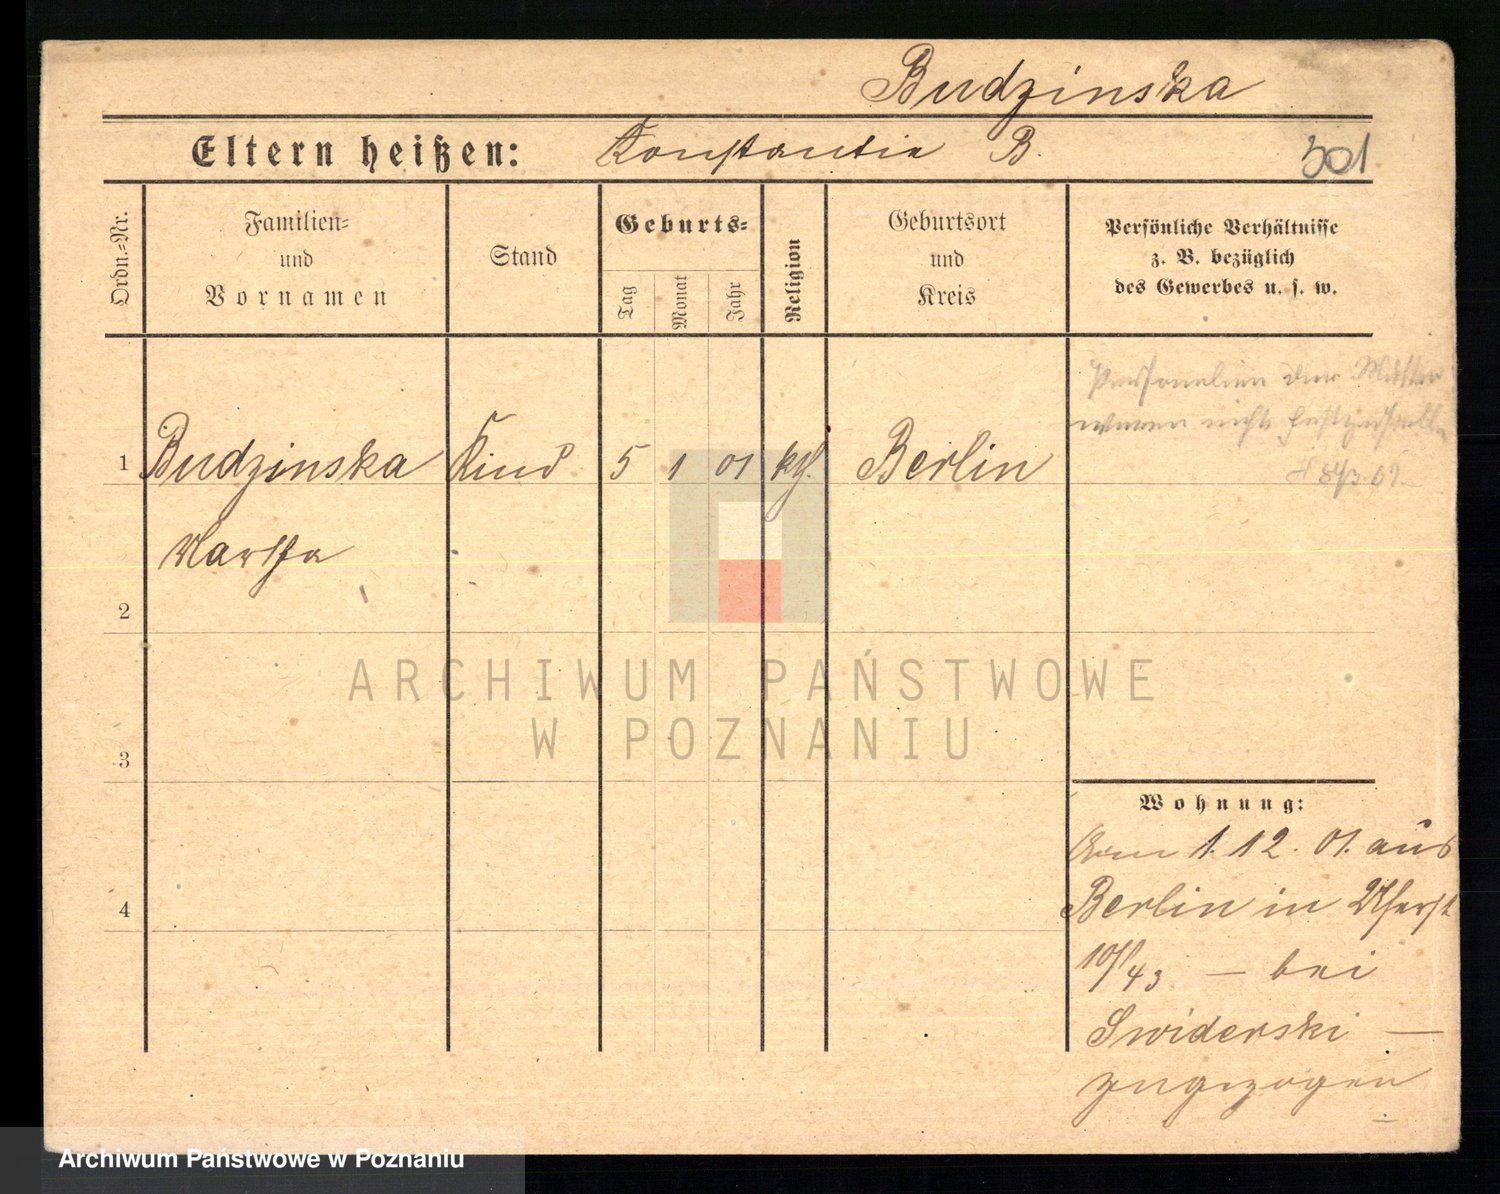 Budzinska
Eltern heißen: Konstantia B. 301
Ordn.=Nr.
Familien=
und
Vornamen
Stand
Geburts=
Tag
Monat
Jahr
Religion
Geburtsort
und
Kreis
Persönliche Verhältnisse
z. B. bezüglich
des Gewerbes u. s. w.
Personalien der Mutter
waren nicht festzustellen
1 Budzinska Kind 5 1 01 kth. Berlin
Martha
2
3
4
Wohnung:
Am 1.12.01. aus
Berlin in
10/43 — bei
Swiderski —
zugezogen
ARCHIWUM PAŃSTWOWE
W POZNANIU
Archiwum Państwowe w Poznaniu